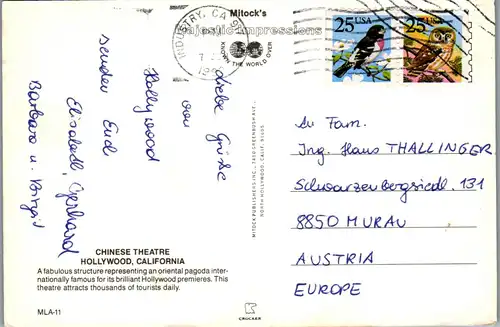 Mitock's
Majestic Impressions
KNOWN THE WORLD OVER
INDUSTRY, CA 9
25 USA
25 USA
Liebe Grüße
von
Hollywood
senden Euch
Elisabeth, Gerhard
Barbara u. Birgit
CHINESE THEATRE
HOLLYWOOD, CALIFORNIA
A fabulous structure representing an oriental pagoda inter-
nationally famous for its brilliant Hollywood premieres. This
theatre attracts thousands of tourists daily.
MLA-11
MITOCK PUBLISHERS INC., 7410 GREENBUSH AVE.,
NORTH HOLLYWOOD, CALIF. 91605
CROCKER
An Fam.
Ing. Haus THALLINGER
Schwarzenbergsiedl. 131
8850 MURAU
AUSTRIA
EUROPE